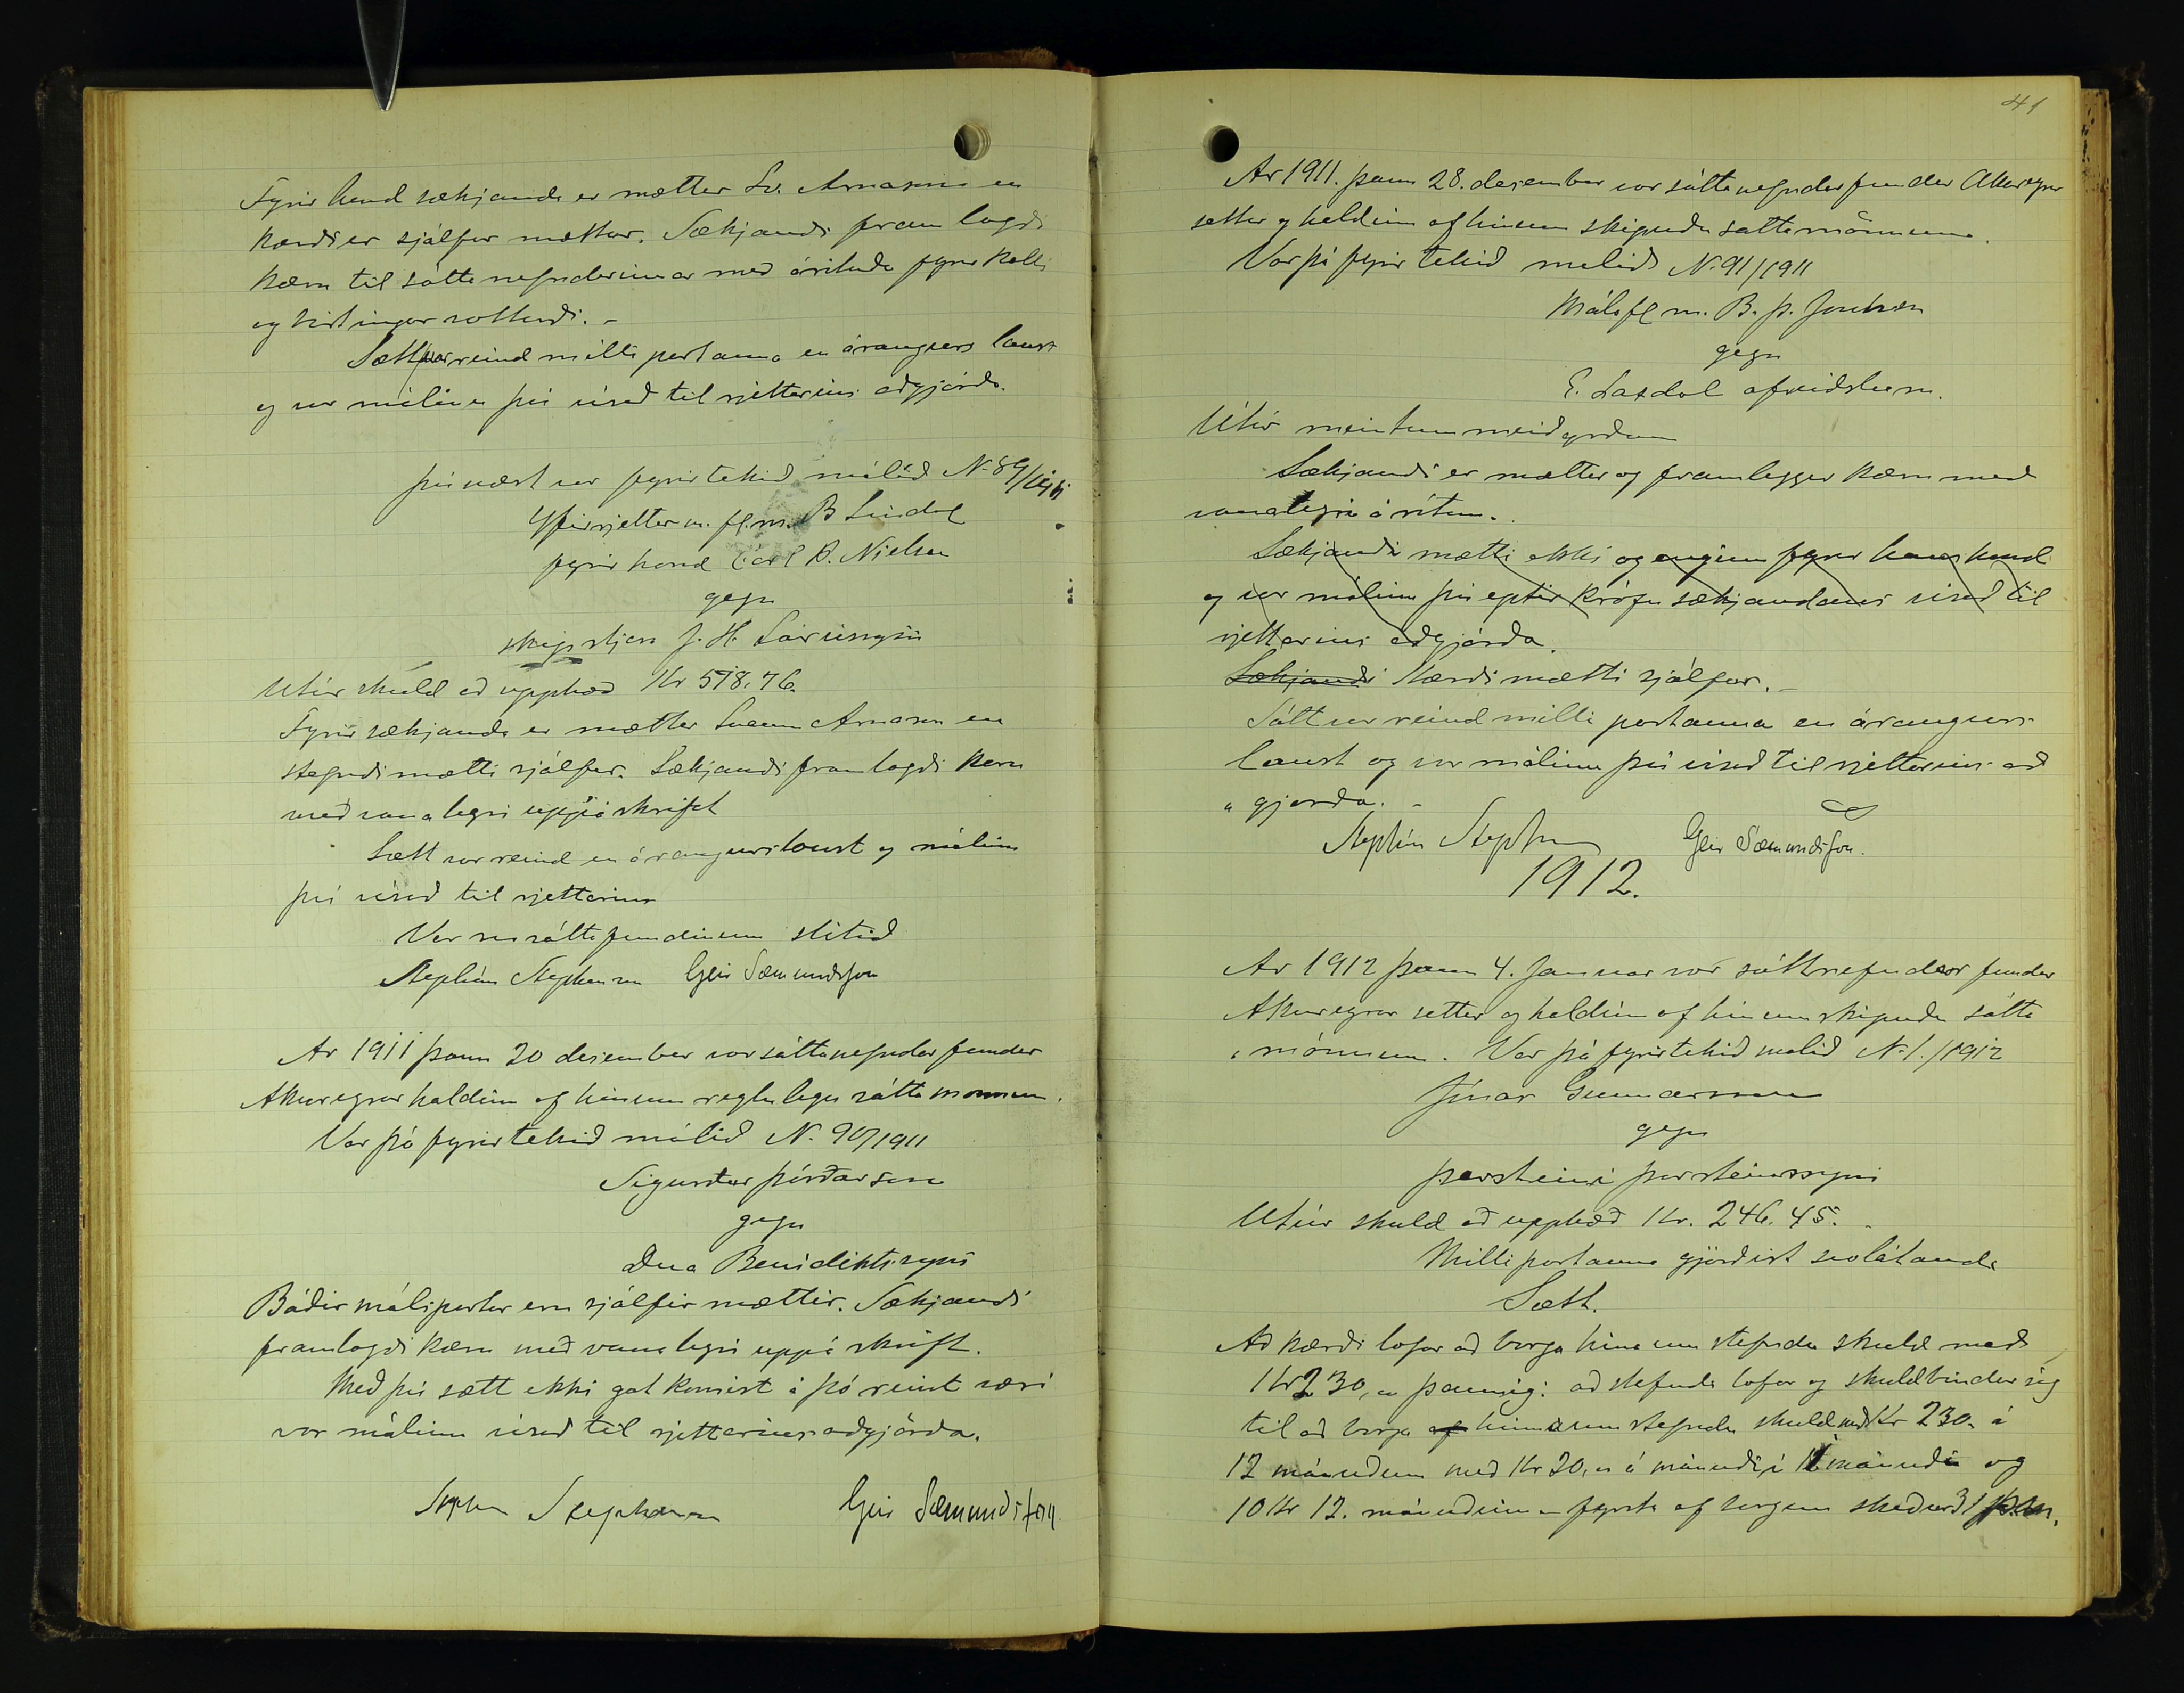 Fyrir hönd sækjanda er mættur Sv. Árnason en
kærði er sjálfur mættur. Sækjandi fram lagði
kæru til sáttanefndarinnar með árituðu fyrirkalli
og birtingar vottorði. -
Sætt var reind milli partanna en árangurs laust
og var málinu því vísað til rjettarins aðgjörða.
Þvínæst var fyrirtekið málið N. 89/1911
Yfirrjettar m. fl.m. B Líndal
fyrir hönd Carl B. Nielsen
gegn
skipstjóra J. H. Lárussyni
Útúr skuld að upphæð Kr 578.76.
Fyrir sækjanda er mættur Sveinn Árnason en
stefndi mætti sjálfur. Sækjandi framlagði kæru
með vanalegri uppáskrift
Sætt var reind en árangurslaust og málinu
því vísað til rjettarins
Var svo sáttafundinum slitið
Stephán Stephensen Geir Sæmundsson
Ár 1911 þann 20 desember var sáttanefndar fundur
Akureyrar haldinn af hinum reglulegu sátta mönnum.
Var þá fyrirtekið málið N. 90/1911
Sigurður Þórðarson
gegn
Benidiktssyni
Báðir málspartar eru sjálfir mættir. Sækjandi
framlagði kæru með vanalegri uppá skrift.
Með því sætt ekki gat komist á þó reint væri
var málinu vísað til rjettarins aðgjörða.
Stephán Stephensen Geir Sæmundsson
41
Ár 1911. þann 28. desember var sáttanefndar fundur Akureyrar
settur og haldinn af hinum skipuðu sáttamönnum.
Var þá fyrir tekið málið N. 91/1911
Málafl m. B. Þ.
gegn
E. Laxdal afreiðslum.
Útúr meintum meiðyrðum
Sækjandi er mættur og framleggur kæru með
vanalegri áritun.
Sækjandi mætti ekki og enginn fyrir hans hönd
og var málinu því eptir kröfu sækjandans vísað til
rjettarins aðgjörða.
Sækjandi Kærði mætti sjálfur. -
Sátt var reind milli partanna en árangurs
laust og var málinu því vísað til rjettarins að
" gjörða. -
Stephán Stephensen Geir Sæmundsson.
1912.
Ár 1912 þann 4. Januar var sáttnefndar fundur
Akureyrar settur og haldinn af hinum skipuðu sátta
" mönnum. Var þá fyrirtekið málið N. 1./1912
Gunnarsson
gegn
Þorsteini Þorsteinssyni
Útúr skuld að upphæð Kr. 246.45. -
Milli partanna gjörðist svolátandi
Sætt.
Að kærði lofar að borga hina um stefndu skuld með
Kr 230,00 þannig: að stefndi lofar og skuldbindur sig
til að borga af hina um stefndu skuld með Kr 230,00 á
12 mánuðum með Kr 20,00 á mánuði í 11 mánuði og
10 Kr 12. mánuðinn fyrsta afborgun skeður 31 þ.m.